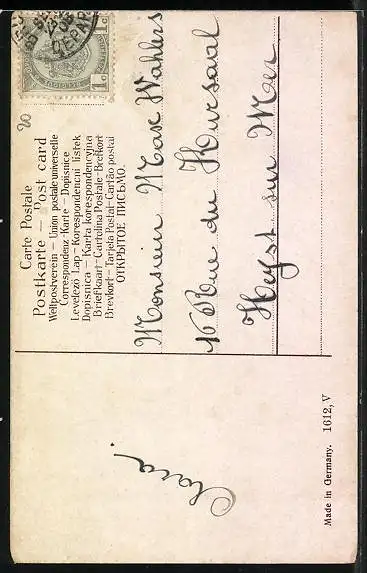 Carte Postale
Postkarte — Post card
Weltpostverein — Union postale universelle
Correspondenz-Karte — Dopisnice
Levelező Lap — Korespondencni listek
Dopisnica — Karta korespondencyjna
Briefkaart — Cartolina Postale — Brefkort
Brevkort — Tarjeta Postal — Cartão postal
ОТКРЫТОЕ ПИСЬМО.
1c 1c
DEPART
20
Monsieur Max Wahlers
16 Rue du Kursaal
Heyst sur Mer
Clara.
Made in Germany. 1612, V